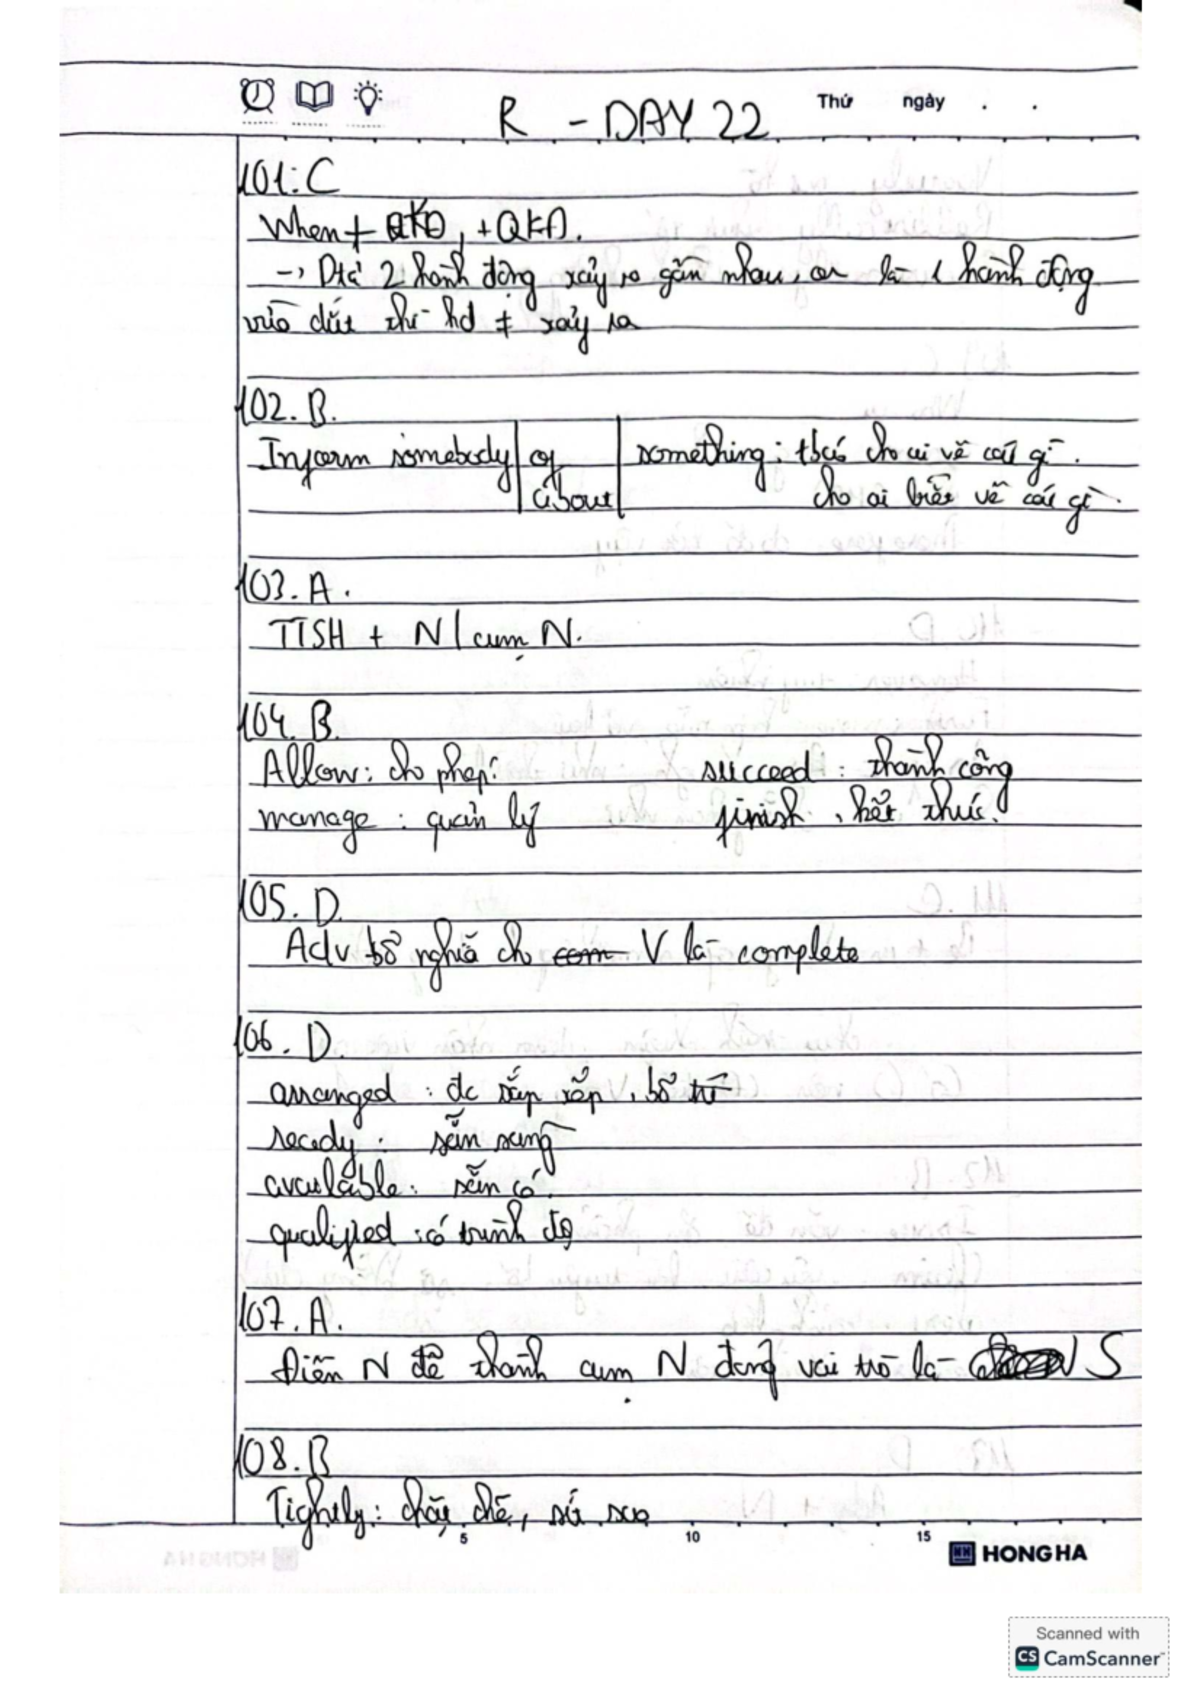 Thứ ngày . .
R - DAY 22
101: C
When + QKĐ, + QKĐ.
-> Dtả 2 hành động xảy ra gần nhau, or là 1 hành động
vừa dứt thì hđ ≠ xảy ra
102. B.
Inform somebody | of | something : tbáo cho ai về cái gì.
about | cho ai biết về cái gì.
103. A.
TTSH + N | cụm N.
104. B.
Allow : cho phép. succeed : thành công
manage : quản lý finish : kết thúc.
105. D.
Adv bổ nghĩa cho V là complete
106. D.
arranged : đc sắp xếp, bố trí
ready : sẵn sàng
available : sẵn có.
qualified : có trình độ
107. A.
Điền N để thành cụm N đóng vai trò là S
108. B
Tightly : chặt chẽ, sít sao
5 10 15
HONG HA
Scanned with
CS CamScanner